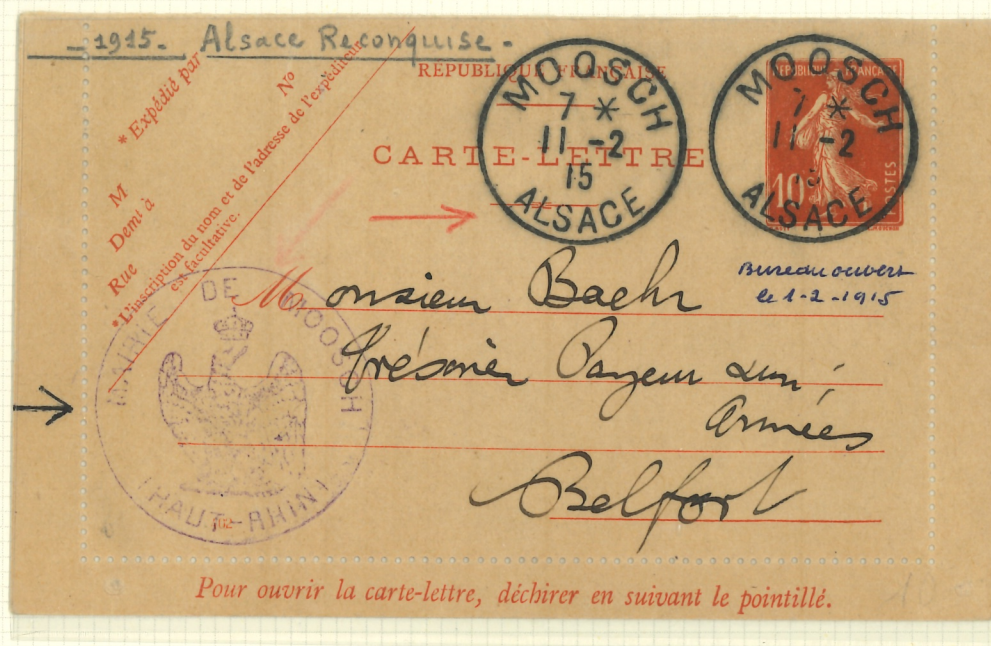 - 1915. Alsace Reconquise.
RÉPUBLIQUE FRANÇAISE
CARTE-LETTRE
* Expédié par
N°
M
Demi à
Rue
*L'inscription du nom et de l'adresse de l'expéditeur
est facultative.
MOOSCH
7 *
11 -2
15
ALSACE
MOOSCH
7 *
11 -2
ALSACE
REPUBLIQUE FRANÇAISE
10c
POSTES
Bureau ouvert
le 1-2-1915
MAIRIE DE MOOSCH
(HAUT-RHIN)
Monsieur Baehr
Trésorier Payeur aux
Armées
Belfort
Pour ouvrir la carte-lettre, déchirer en suivant le pointillé.